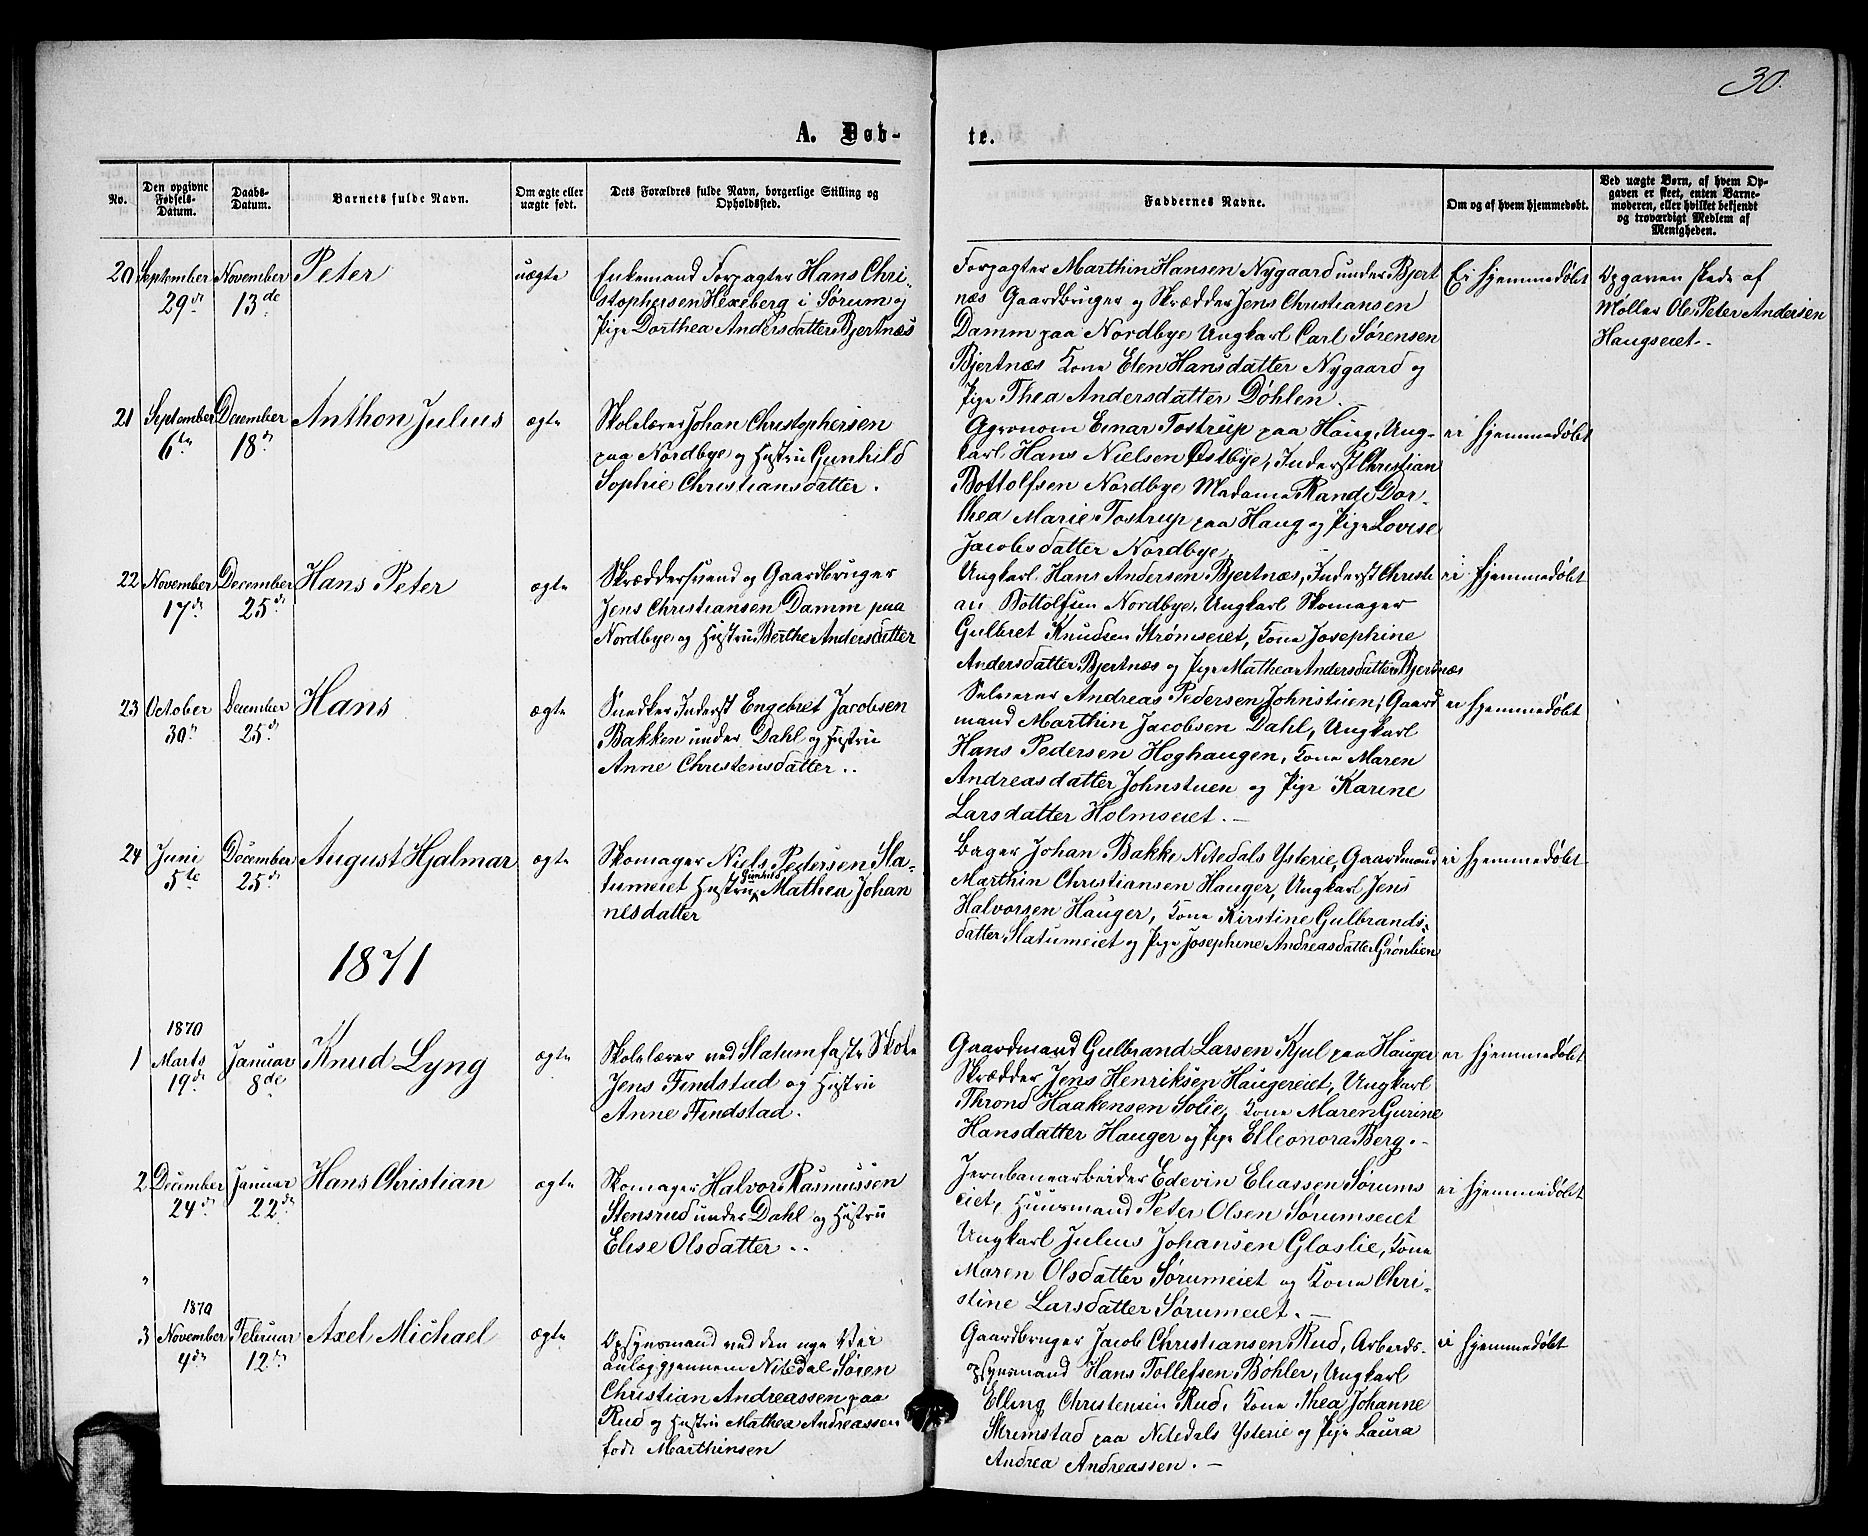 30.
A. Døb-
te.
No.
Den opgivne Fødsels-Datum.
Daabs-Datum.
Barnets fulde Navn.
Om ægte eller uægte født.
Dets Forældres fulde Navn, borgerlige Stilling og Opholdssted.
Faddernes Navne.
Om og af hvem hjemmedøbt.
Ved uægte Børn, af hvem Opgaven er skeet, enten Barnemoderen, eller hvilket bekjendt og troværdigt Medlem af Menigheden.
20
September
29de
November
13de
Peter
uægte
Enkemand Forpagter Hans Chri-
stophersen Hexeberg i Sørum og
Pige Dorthea Andersdatter Bjertnæs
Forpagter Marthin Hansen Nygaard under Bjert
næs Gaardbruger og Skrædder Jens Christiansen
Damm paa Nordbye Ungkarl Carl Sørensen
Bjertnæs Kone Elen Hansdatter Nygaard og
Pige Thea Andersdatter Døhlen. –
Ei hjemmedøbt
Opgaven skede af
Møller Ole Peter Andersen
Haugseiet.
21
September
6te
December
18de
Anthon Julius
ægte
Skolelærer Johan Christophersen
paa Nordbye og Hustru Gunhild
Sophie Christiansdatter.
Agronom Einar Tostrup paa Haug, Ung-
karl Hans Nielsen Østbye, Inderst Christian
Bottolfsen Nordbye Madame Rande Dor-
thea Marie Tostrup paa Haug og Pige Lovise
Jacobsdatter Nordbye.
ei hjemmedøbt
22
November
17de
December
25de
Hans Peter
ægte
Skræddersvend og Gaardbruger
Jens Christiansen Damm paa
Nordbye og Hustru Berthe Andersdatter
Ungkarl Hans Andersen Bjertnæs, Inderst Christi
an Bottolfsen Nordbye, Ungkarl Skomager
Gulbret Knudsen Strømseiet, Kone Josephine
Andersdatter Bjertnæs og Pige Mathea Andersdatter Bjertnæs
ei hjemmedøbt
23
October
30te
December
25de
Hans
ægte
Snedker Inderst Engebret Jacobsen
Bakken under Dahl og Hustru
Anne Christensdatter.
Selveier Andreas Pedersen Johnstuen, Gaard
mand Marthin Jacobsen Dahl, Ungkarl
Hans Pedersen Hoghaugen, Kone Maren
Andreasdatter Johnstuen og Pige Karine
Larsdatter Holmseiet. –
ei hjemmedøbt
24
Juni
5te
December
25de
August Hjalmar
ægte
Skomager Niels Pedersen Sla-
tumeiet Hustru Mathea Johan
nesdatter
Bager Johan Bakke Nitedals Ysterie, Gaardmand
Marthin Christiansen Hauger, Ungkarl Jens
Halvorsen Hauger, Kone Kirstine Gulbrands-
datter Slatumeiet og Pige Josephine Andreasdatter Grønlien
ei hjemmedøbt
1871
1
1870
Marts
19de
Januar
8de
Knud Lyng
ægte
Skolelærer ved Slatum faste Skole
Jens Findstad og Hustru
Anne Findstad.
Gaardmand Gulbrand Larsen Kjul paa Hauger
Skrædder Jens Henriksen Haugereiet, Ungkarl
Thrond Haakensen Solie, Kone Maren Gurine
Hansdatter Hauger og Pige Elleonora Berg. –
ei hjemmedøbt
2
December
24de
Januar
22de
Hans Christian
ægte
Skomager Halvor Rasmussen
Stensrud under Dahl og Hustru
Elise Olsdatter.
Jernbanearbeider Edevin Eliassen Sørums
eiet, Huusmand Peter Olsen Sørumseiet
Ungkarl Julius Johansen Gloslie, Kone
Maren Olsdatter Sørumeiet og Kone Chri-
stine Larsdatter Sørumeiet. –
ei hjemmedøbt
3
1870
November
4de
Februar
12te
Axel Michael
ægte
Opsynsmand ved den nye Vei
anlæg gjennem Nitedal Søren
Christian Andreassen paa
Rud og Hustru Mathea Andreassen
født Marthinsen
Gaardbruger Jacob Christiansen Rud, Arbeids-
opsynsmand Hans Tollefsen Bøhler, Ungkarl
Elling Christensen Rud, Kone Thea Johanne
Skrimstad paa Nitedals Ysterie og Pige Laura
Andrea Andreassen. –
ei hjemmedøbt